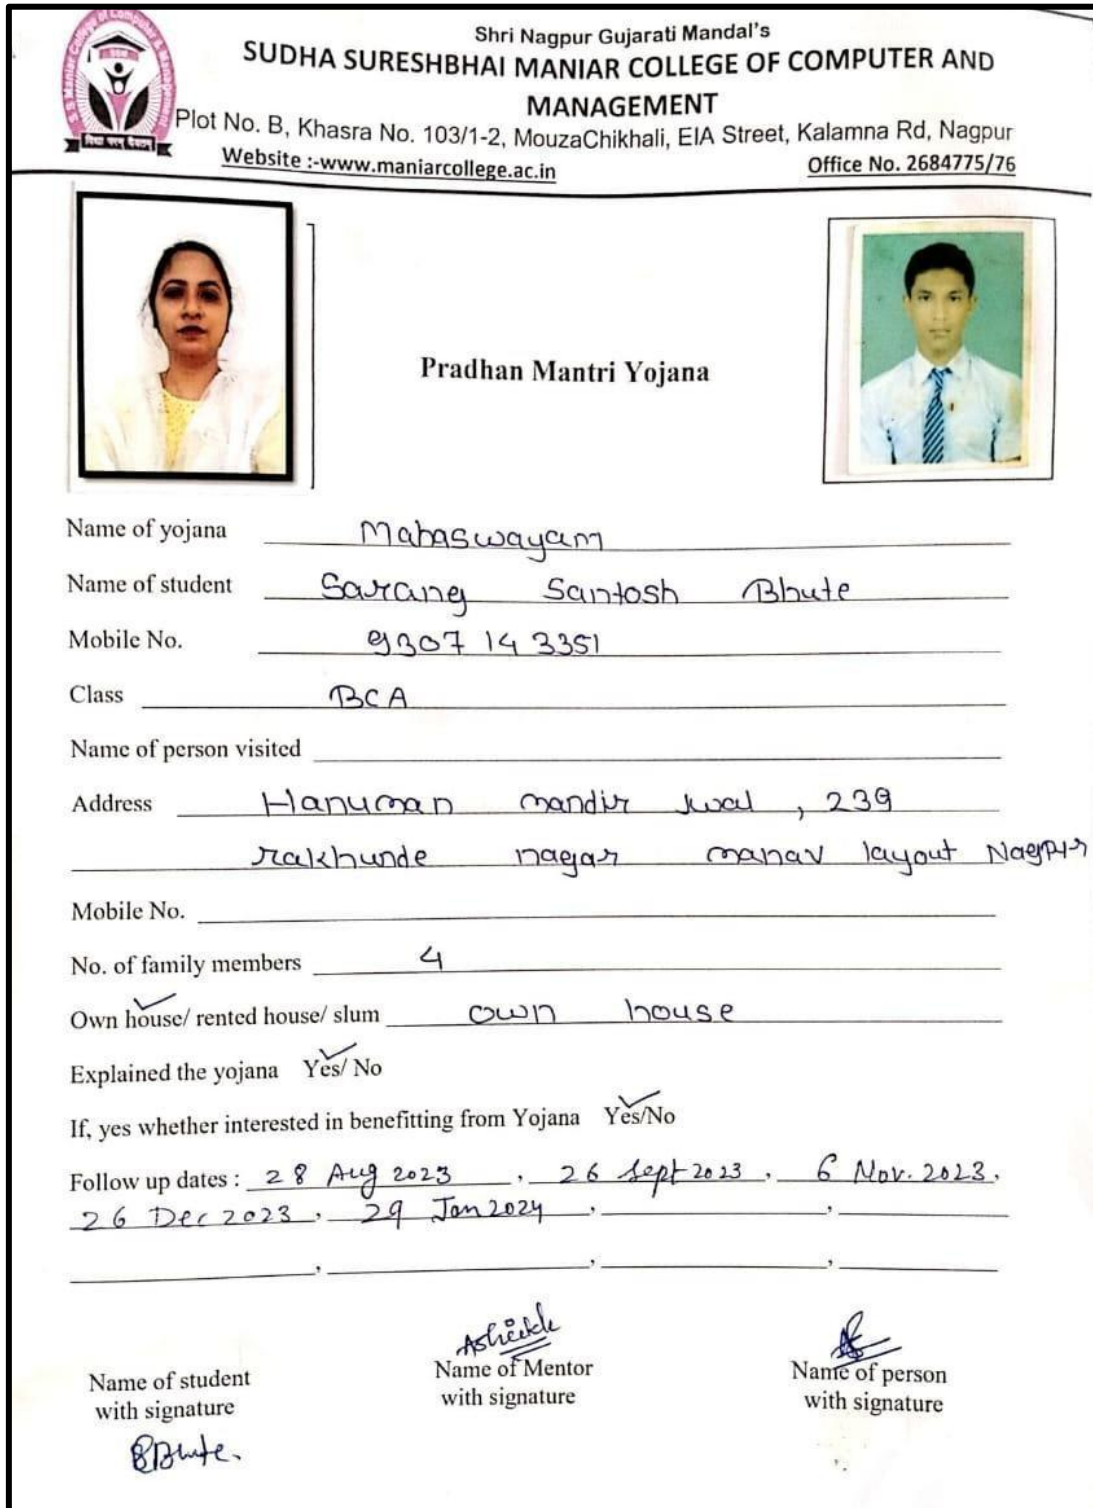 S S Maniar College of Computer & Management
Shri Nagpur Gujarati Mandal's
SUDHA SURESHBHAI MANIAR COLLEGE OF COMPUTER AND
MANAGEMENT
Plot No. B, Khasra No. 103/1-2, MouzaChikhali, EIA Street, Kalamna Rd, Nagpur
Website :-www.maniarcollege.ac.in Office No. 2684775/76
Pradhan Mantri Yojana
Name of yojana Mahaswayam
Name of student Sarang Santosh Bhute
Mobile No. 9307 14 3351
Class BCA
Name of person visited
Address Hanuman mandir jwal , 239
rakhunde nagar manav layout Nagpur
Mobile No.
No. of family members 4
Own house/ rented house/ slum own house
Explained the yojana Yes/ No
If, yes whether interested in benefitting from Yojana Yes/No
Follow up dates : 28 Aug 2023 , 26 Sept 2023 , 6 Nov. 2023,
26 Dec 2023 , 29 Jan 2024 , ,
, , ,
Name of student
with signature
Name of Mentor
with signature
Name of person
with signature
SBhute.